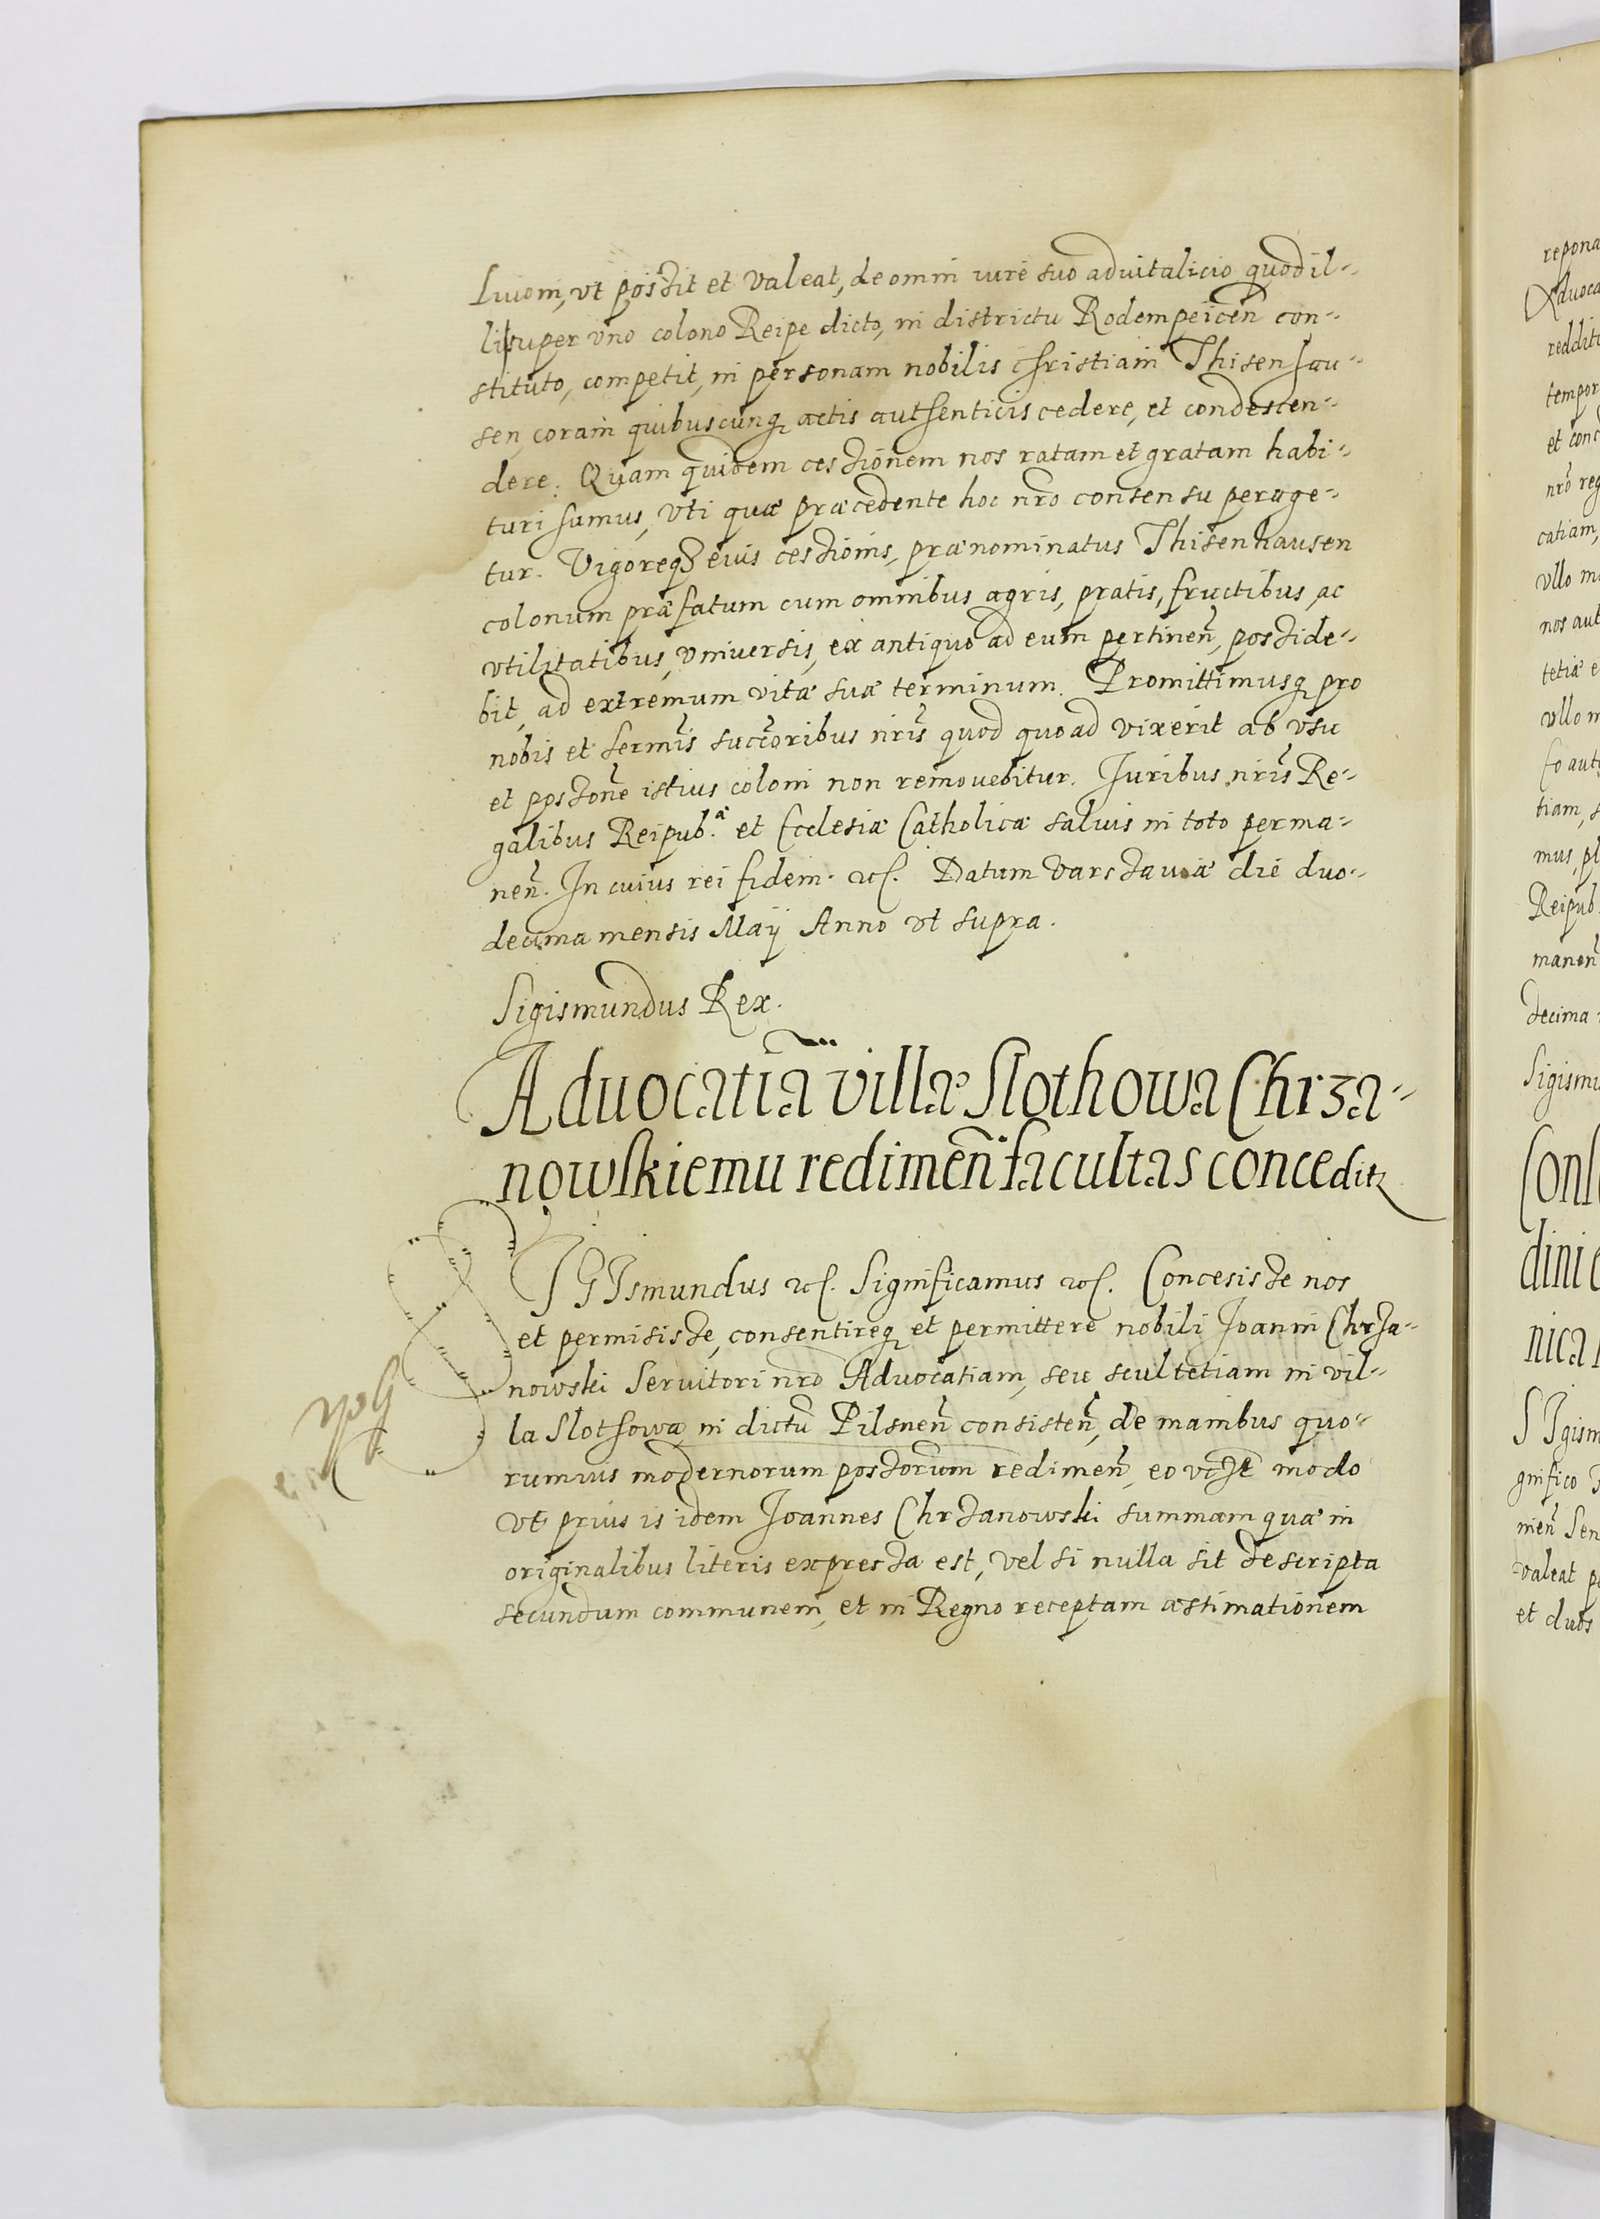 Liuoni, vt possit et valeat, de omni iure suo aduitalicio quod il-
li super vno colono Reipe dicto, in districtu Rodempeicen̄ con-
stituto, competit, in personam nobilis Christiani Thisenhau-
sen, coram quibuscunq; actis authenticis cedere, et condescen-
dere. Quam quidem cessionem nos ratam et gratam habi-
turi sumus, vti quæ præcedente hoc nr̄o consensu perage-
tur. Vigoreq; eius cessionis, prænominatus Thisenhausen
colonum præfatum cum omnibus agris, pratis, fructibus, ac
vtilitatibus, vniuersis, ex antiquo ad eum pertinen̄, posside-
bit, ad extremum vitæ suæ terminum. Promittimusq; pro
nobis et serm̄is succ̄oribus nr̄is quod quoad vixerit ab vsu
et poss̄one istius coloni non remouebitur. Iuribus nr̄is Re-
galibus Reipub.ᵃ et Ecclesiæ Catholicæ saluis in toto perma-
nen̄. In cuius rei fidem. etc. Datum Varssauiæ die duo-
decima mensis Maÿ Anno vt supra.
Sigismundus Rex.
Aduocatiā villæ Slothowa Chrza-
nowskiemu redimen̄ facultas conceditz
SIGIsmundus etc. Significamus etc. Concesisse nos
et permisisse, consentireq; et permittere nobili Joanni Chrza-
nowski Seruitori nr̄o Aduocatiam, seu scultetiam in vil-
la Slothowa in dictū Pilsnen̄ consisten̄, de manibus quo-
rumuis modernorum poss̄orum redimen̄, eo vt̄ modo
vt prius is idem Joannes Chrzanowski summam quæ in
originalibus literis expressa est, vel si nulla sit descripta
secundum communem, et in Regno receptam æstimationem
repona
Aduoca
reddit
tempor
et conc
nr̄o reg
catiam,
vllo m
nos aut
tetiæ e
vllo m
tiam, s
mus, pl
Reipub
manen̄
decima
Sigismu
Cons
dini
nica
SIgism
gnifico
men̄ Sen
valeat p
et duos